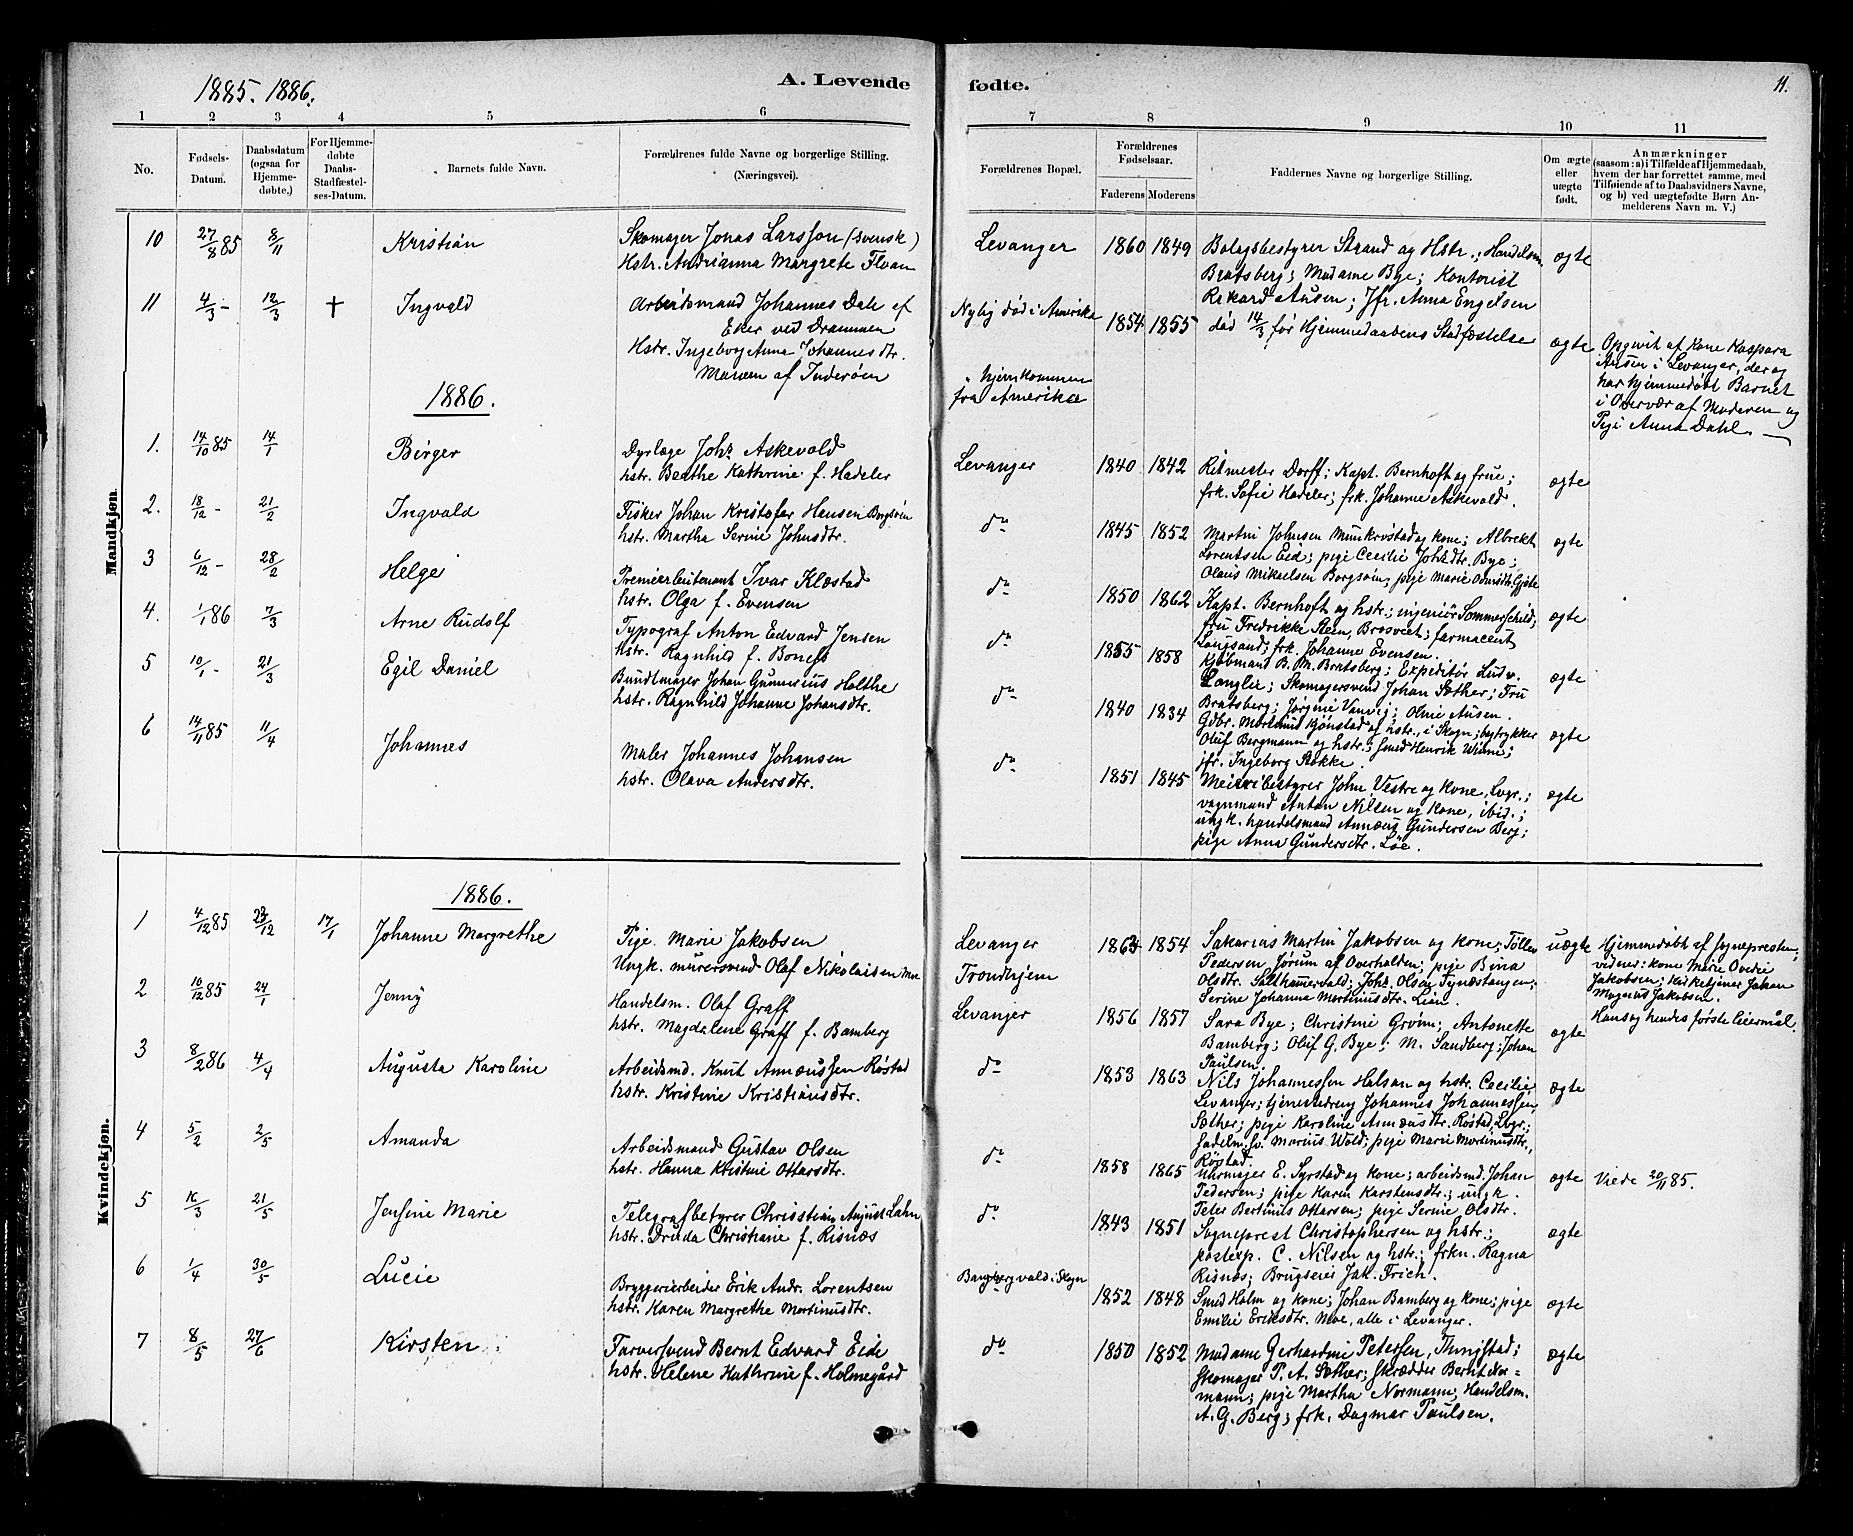 1885. 1886.
A. Levende
fødte.
11.
1 2 3 4 5 6 7 8 9 10 11
No.
Fødsels-
Datum.
Daabsdatum
(ogsaa for
Hjemme-
døbte,)
For Hjemme-
døbte
Daabs-
Stadfæstel-
ses-Datum.
Barnets fulde Navn.
Forældrenes fulde Navne og borgerlige Stilling.
(Næringsvei).
Forældrenes Bopæl.
Forældrenes
Fødselsaar.
Faderens Moderens
Faddernes Navne og borgerlige Stilling.
Om ægte
eller
uægte
født.
Anmærkninger
(saasom: a) i Tilfælde af Hjemmedaab,
hvem der har forrettet samme, med
Tilføiende af to Daabsvidners Navne,
og b) ved uægtefødte Børn An-
melderens Navn m. V.)
Mandkjøn.
10 27/8 85 8/11 Kristian
Skomager Jonas Larsson (svensk)
Hstr. Andrianna Margrete Floan
Levanger 1860 1849
Bolagsbestyrer Strand og Hstr.; Handelsm.
Bratsberg; Madame Bye; Kontorist
Rikard Ausen; Jfr. Anna Engelsen
ægte
11 4/3 - 12/3 + Ingvald
Arbeidsmand Johannes Dahl af
Eker ved Drammen
Hstr. Ingeborg Anna Johannesdtr.
af Inderøen
Nylig død i Amerika
" hjemkommen
fra Amerika
1854 1855
død 14/3 før Hjemmedaabens Stadfæstelse
ægte
Opgivit af Kone Kaspara
Ausen i Levanger, der og
har hjemmedøbt Barnet
i Overvær af Moderen og
Pige Anna Dahl. —
1886.
1. 14/10 85 14/1 Birger
Dyrlæge Johs. Askevold
hstr. Beathe Kathrine f. Hadeler
Levanger 1840 1842
Ritmester Dorff; Kapt. Bernhoft og frue;
frk. Sofie Hadeler; frk. Johanne Askevold.
ægte
2. 18/12 - 21/2 Ingvald
Fisker Johan Kristofer Hansen Borgsøin
hstr. Martha Serine Johnsdtr.
do 1845 1852
Martin Johnsen Munkrøstad og kone; Albrekt
Lorentsen Eid; pige Cecilie Johsdtr. Bye;
Olaus Mikaelsen Borgsøin; pige Marie
ægte
3 6/12 - 28/2 Helge
Premierleutenant Ivar Klæstad
hstr. Olga f. Evensen
do 1850 1862
Kapt. Bernhoft og hstr.; ingeniør Sommerschild;
fru Fredrikke Stein, Brosveet; farmaceut
Langsand; frk. Johanne Evensen.
ægte
4. 1/1 86 7/3 Arne Rudolf
Typograf Anton Edvard Jensen
hstr. Ragnhild f. Bonefs
do 1855 1858
Kjøbmand B. M. Bratsberg; Expeditør Ludv.
Langlie; Skomagersvend Johan Sæther; Fru
Bratsberg; Jørgine Vanvig; Oline Ausen.
ægte
5 10/1 - 21/3 Egil Daniel
Bundtmager Johan Gunnerius Holthe
hstr. Ragnhild Johanne Johansdtr.
do 1840 1834
Gdbr. Mortinus Kjønstad og hstr., i Skogn; bytrykker
Oluf Bergmann og hstr.; smed Henrik Winne;
jfr. Ingeborg Røkke.
ægte
6 14/11 85 11/4 Johannes
Maler Johannes Johansen
hstr. Olava Andersdtr.
do 1851 1845
Meieribestyrer John Vestre og kone, Lvgr.;
vognmand Anton Nilsen og kone, ibid.;
ungk. handelsmand Annæus Gundersen Berg;
pige Anna Gundersdtr. Løe.
ægte
Kvindekjøn.
1886.
1 4/12 85 23/12 17/1 Johanne Margrethe
Pige. Marie Jakobsen
Ungk. murersvend Olaf Nikolaisen Moe
Levanger
Trondhjem
1864 1854
Sakarias Martin Jakobsen og kone; Tøller
Pedersen Jørum af Overhalden; pige Bina
Olsdtr. Salthamervald; Johs. Olsen Tynæstangen;
Serine Johanna Mortinusdtr. Lian.
uægte
Hjemmedøbt af sognepresten;
vidner: kone Marie
Jakobsen; kirketjener Johan
Magnus Jakobsen.
Hans og hendes første leiermål.
2 10/12 85 24/1 Jenny
Handelsm. Olaf Graff
hstr. Magdalene Graff f. Bamberg
Levanger 1856 1857
Sara Bye; Christine Grønn; Antonette
Bamberg; Oluf G. Bye; M. Sandberg; Johan
Paulsen.
ægte
3 8/2 86 4/4 Augusta Karoline
Arbeidsmd. Knut Annæussen Røstad
hstr. Kristine Kristiansdtr.
do 1853 1863
Nils Johannessen Halsan og hstr. Cecilie,
Levanger; tjenestedreng Johannes Johannessen
Sæther; pige Karoline Annæusdtr. Røstad, Lvgr.;
sadelm.sv. Marius Wold; pige Marie Mortinusdtr.,
Røstad.
ægte
4 5/2 2/5 Amanda
Arbeidsmand Gustav Olsen
hstr. Hanna Kristine Ottarsdtr.
do 1858 1865
Uhrmager E. Syrstad og kone; arbeidsmd. Johan
Pedersen; pige Karen Karstensdtr.; ungk.
Peter Bertinius Ottersen; pige Serine Olsdtr.
ægte
Viede 20/11 85.
5 16/3 21/5 Jensine Marie
Telegrafbestyrer Christian August Lahn
hstr. Druda Christiane f. Risnæs
do 1843 1851
Sogneprest Christophersen og hstr.;
postexp. C. Nilsen og hstr.; frkn. Ragna
Risnæs; Brugseier Jak. Frich.
ægte
6 1/4 30/5 Lucie
Bryggeriarbeider Erik Andr. Lorentsen
hstr. Karen Margrethe Mortinusdtr.
Bambergvald i Skogn
1852 1848
Smed Holm og kone; Johan Bamberg og kone; pige
Emilie Eriksdtr. Moe, alle i Levanger.
ægte
7 8/5 27/6 Kirsten
Farversvend Bernt Edvard Eide
hstr. Helene Kathrine f. Holmegård
do 1850 1852
Madame Gerhardine Petersen, Thingstad;
skomager P. A. Sæther; skrædder Bernt Nor-
mann; pige Martha Normann; Handelsm.
A. G. Berg; frk. Dagmar Paulsen.
ægte